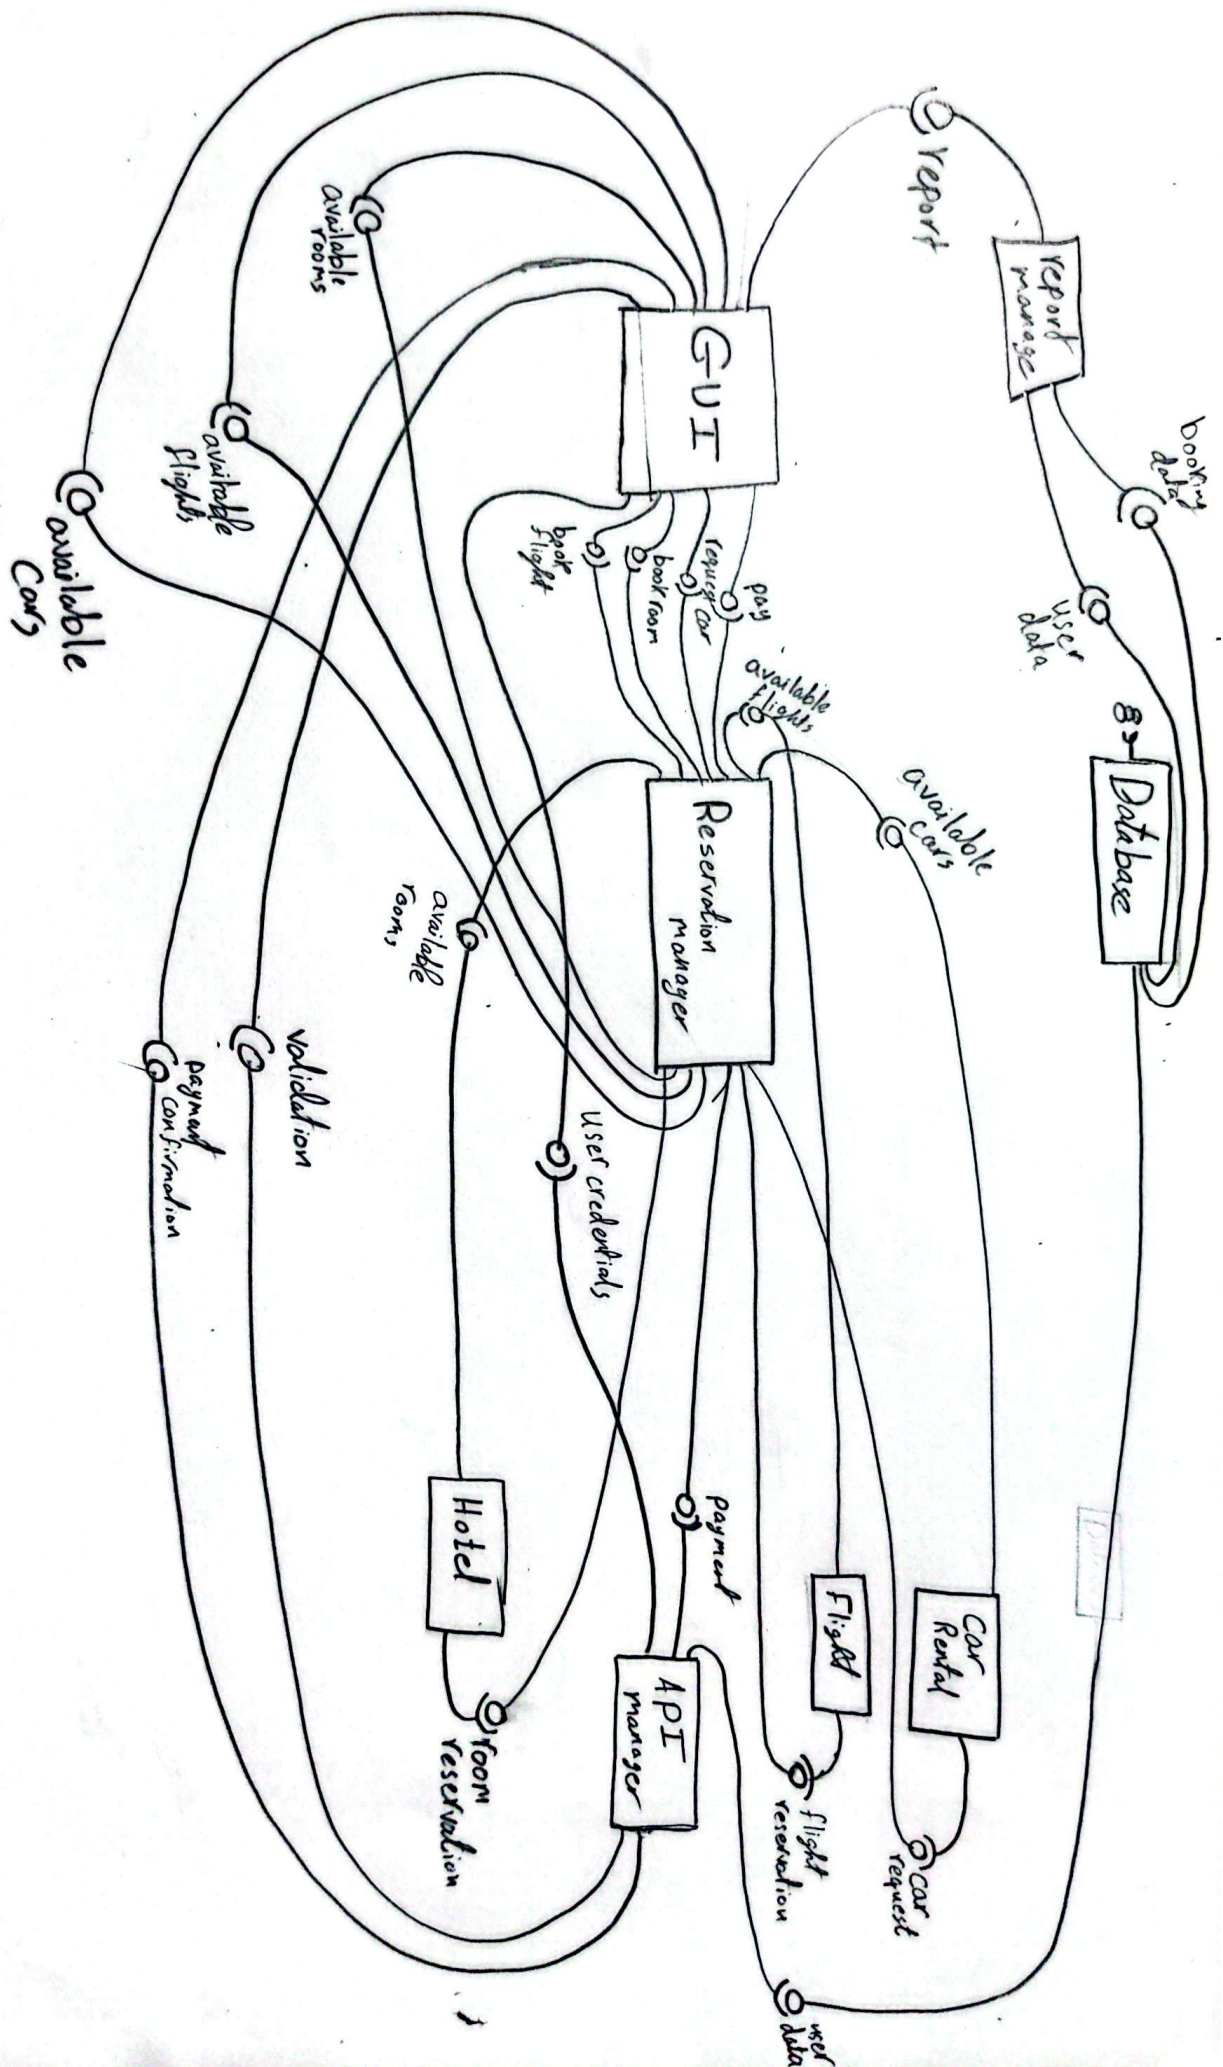 report
report
manage
booking
data
user
data
Database
GUI
available
rooms
available
flights
available
Cars
book
flight
book room
request
car
pay
available
flights
available
cars
Reservation
manager
available
rooms
validation
payment
confirmation
user credentials
payment
Hotel
Flight
Car
Rental
API
manager
room
reservation
flight
reservation
car
request
user
data